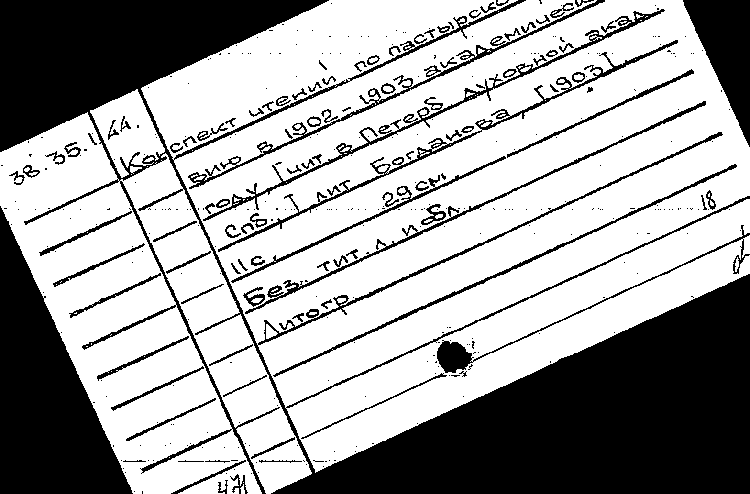 38.35.1.44.
Конспект чтений по пастырско
вию в 1902-1903 академическ
году, [чит. в Петерб духовной акад.
Спб., ] лит Богданова, [1903].
11с. 29см.
Без тит. л. и обл.
Литогр.
18
471